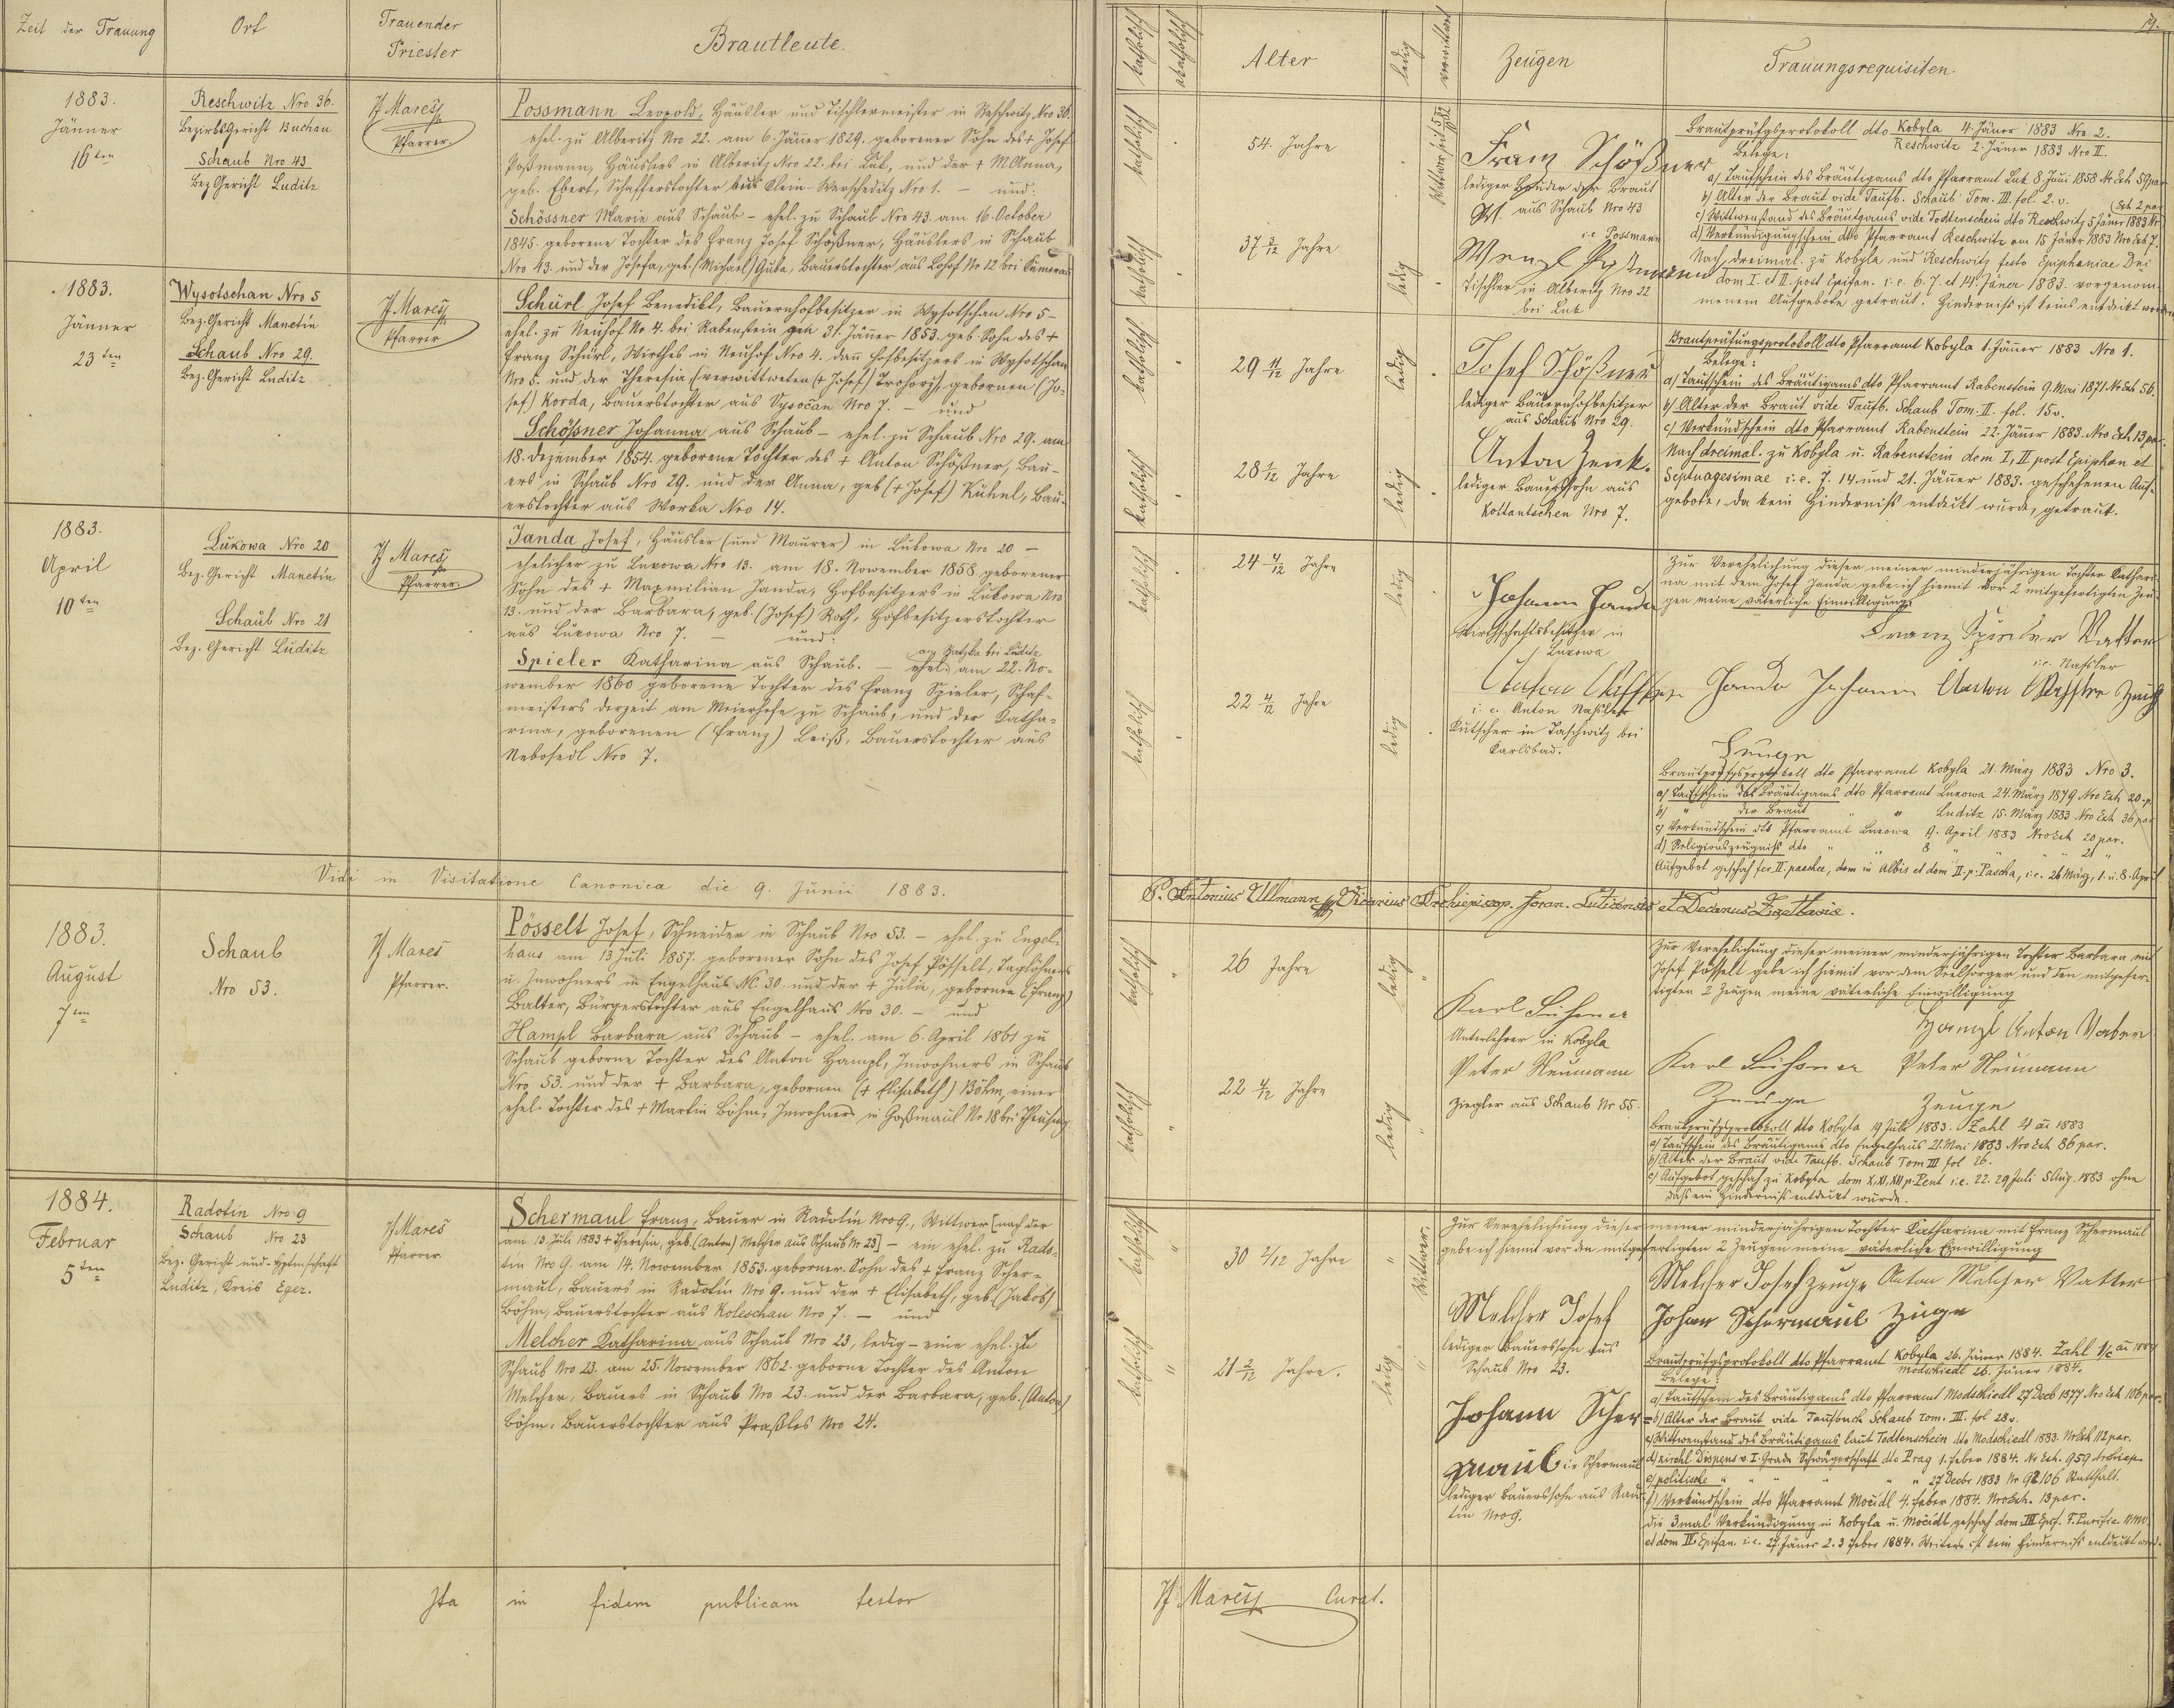 Zeit der Trauung
Ort
Trauender
Priester
Brautleute.
1883.
Jänner
16ten
Reschwitz Nro 36.
Bezirksgericht Buchau
Schaub Nro 43
Bez Gericht Luditz
Mareš
Pfarrer.
Possmann Leopold, Häusler und Tischlermeister in Reschwitz Nro 36.
ehel. zu Alberitz Nro 22. am 6. Jäner 1829. geborener Sohn des + Josef
Poßmann, Häuslers in Alberitz Nro 22. bei Lub, und der + M Anna,
geb. Ebert, Schafferstochter aus Klein-Werscheditz Nro 1. – und:
Schössner Marie aus Schaub – ehel. zu Schaub Nro 43. am 16. October
1845. geborene Tochter des Franz Josef Schößner, Häuslers in Schaub
Nro 43. und der Josefa, geb. (Michael) Guba, Bauerstochter aus Nro 12 bei
1883.
Jänner
23ten
Wysotschan Nro 5
Bez. Gericht Manetin
Schaub Nro 29.
Bez. Gericht Luditz
Mareš
Pfarrer
Schürl Josef Benedikt, Bauernhofbesitzer in Wysotschan Nro 5 –
ehel. zu Neuhof No 4. bei Rabenstein am 31. Jänner 1853. geb. Sohn des +
Franz Schürl, Wirthes in Neuhof Nro 4. dann Hofbesitzers in Wysotschan
Nro 5. und der Theresia, (verwittweten (+ Josef) gebornen (Jo-
sef) Korda, Bauerstochter aus Vysočan Nro 7. – und
Schößner Johanna aus Schaub – ehel. zu Schaub Nro 29. am
18. Dezember 1854. geborene Tochter des + Anton Schößner, Bau-
ers in Schaub Nro 29. und der Anna, geb (+ Josef) Kühnl, Bau-
erstochter aus Worka Nro 14.
1883.
April
10ten
Lukowa Nro 20
Bez. Gericht Manetin
Schaub Nro 21
Bez. Gericht Luditz
Mareš
Pfarrer.
Janda Josef, Häusler (und Maurer) in Lukowa Nro 20 –
ehelicher zu Lukowa Nro 13. am 18. November 1858 geborener
Sohn des + Maxmilian Janda, Hofbesitzers in Lukowa Nro
13. und der Barbara, geb. (Josef) Roth, Hofbesitzerstochter
aus Lukowa Nro 7. – und:
Spieler Katharina aus Schaub. – ehel. am 22. No-
wember 1860 geborene Tochter des Franz Spieler, Schaf-
meisters derzeit am Meierhofe zu Schaub, und der Katha-
rina, geborenen (Franz) Leiß, Bauerstochter aus
Nebosedl Nro 7.
Vidi in Visitatione Canonica die 9. Junii 1883.
1883.
August
7ten
Schaub
Nro 53.
Mareš
Pfarrer.
Pösselt Josef, Schneider in Schaub Nro 53. – ehel. zu Engel-
haus am 13 Juli 1857. geborener Sohn des Josef Pösselt, Taglöhners
u. Inwohners in Engelhaus NC 30. und der + Julia, gebornen (Franz)
Balter, Bürgerstochter aus Engelhaus Nro 30. – und
Hampl Barbara aus Schaub – ehel. am 6. April 1861 zu
Schaub geborne Tochter des Anton Hampl, Inwohners in Schaub
Nro 53. und der + Barbara, gebornen (+ Elisabeth) Böhm, einer
ehel. Tochter des + Martin Böhm, Inwohners in Goßmaul No 18 bei Theusing
1884.
Februar
5ten
Radotin Nro 9
Schaub Nro 23
Bez. Gericht und Hptmschaft
Luditz, Kreis Eger.
Mareš
Pfarrer.
Schermaul Franz, Bauer in Radotin Nro 9., Wittwer [nach der
am 13. Juli 1883 + Theresia, geb. (Anton) Melcher aus Schaub Nr 23] – ein ehel. zu Rado-
tin Nro 9. am 14. November 1853. geborner Sohn des + Franz Scher-
maul, Bauers in Radotin Nro 9. und der + Elisabeth, geb. (Jakob)
Böhm, Bauerstochter aus Koleschau Nro 7. – und
Melcher Katharina aus Schaub Nro 23, ledig – eine ehel. zu
Schaub Nro 23. am 25. November 1862. geborne Tochter des Anton
Melcher, Bauers in Schaub Nro 23. und der Barbara, geb. (Anton)
Böhm, Bauerstochter aus Praßles Nro 24.
Ita in fidem publicam testor
19.
katholisch
akatholisch
Alter
ledig
verwittwet
Zeugen
Trauungsrequisiten.
katholisch
54. Jahre
Franz Schößner
lediger Bruder der Braut
aus Schaub Nro 43
katholisch
37 3/12 Jahre
ledig
i.e. Possmann
Wenzl Poßmann
Tischler in Alberitz Nro 22
bei Lub
Brautprüfgsprotokoll dto Kobyla 4. Jäner 1883 Nro 2.
Reschwitz 2. Jäner 1883 Nro II.
Belege:
a) Taufschein des Bräutigams dto Pfarramt Lub 8. Juni 1858 Nr Exh 59 par
b) Alter der Braut vide Taufb. Schaub Tom. III. fol. 2. v.
c) Wittwenstand des Bräutgams vide Todtenschein dto Reschwitz 5 Jäner 1883 Nr
(Exh 2 par
d) Verkündigungschein dtto Pfarramt Reschwitz am 15 Jäner 1883 Nro Exh 7.
Nach dreimal. zu Kobyla und Reschwitz festo Epiphaniae Dni
dom I. et II. post Epifan. i. e. 6. 7. et 14. Jäner 1883. vorgenom-
menem Aufgebote getraut. Hinderniß ist keins entdeckt worden
katholisch
29 11/12 Jahre
ledig
Josef Schößner
lediger Bauernhofbesitzer
aus Schaub Nro 29.
katholisch
28 1/12 Jahre
ledig
Anton Zenk.
lediger Bauerssohn aus
Kottantschen Nro 7.
Brautprüfungsprotokoll dto Pfarramt Kobyla 1. Jänner 1883 Nro 1.
Belege:
a) Taufschein des Bräutigams dto Pfarramt Rabenstein 9. Mai 1871 Nr Exh 56.
b) Alter der Braut vide Taufb. Schaub Tom. II. fol. 15 v.
c) Verkündschein dto Pfarramt Rabenstein 22. Jänner 1883. Nro Exh 13 par.
Nach dreimal. zu Kobyla u. Rabenstein dom I, II post Epiphan et
Septuagesimae i. e. 7. 14. und 21. Jänner 1883. geschehenen Auf-
gebote, da kein Hinderniß entdeckt wurde, getraut.
katholisch
24 4/12 Jahre
ledig
Johann Janda
Wirthschaftsbesitzer in
Lukowa
katholisch
22 4/12 Jahre
ledig
i. e. Anton Naßler
Kutscher in Taschwitz bei
Karlsbad.
Zur Verehelichung dieser meiner minderjährigen Tochter Cathari-
na mit dem Josef Janda gebe ich hiemit vor 2 mitgefertigten Zeu-
gen meine väterliche Einwilligung.
Franz Spieler Vatter
i.e. Naßler
Janda Johann Anton Zeuge
Zeuge
Brautprüfgsprotokoll dto Pfarramt Kobyla 21. März 1883 Nro 3.
a) Taufschein des Bräutigams dto Pfarramt Lukowa 24. März 1879 Nro Exh 20. p.
b) " der Braut " " Luditz 15. März 1883 Nro Exh 36 par
c) Verkündschein dto Pfarramt Lukowa 9. April 1883 Nro Exh 20 par.
d) Religionszeugniß dto " " 8 " " " 21 "
Aufgebot geschah fer II. paschae, dom in Albis et dom II. p. Pascha, i.e. 26 März, 1. u. 8. April
P. Antonius Ullmann Vicarius Archiepiscop. foran. Luticensis et Decanus
katholisch
26 Jahre
ledig
Karl
Unterlehrer in Kobyla
katholisch
22 4/12 Jahre
ledig
Peter Neumann
Ziegler aus Schaub Nr 55.
Zur Verehelichung dieser meiner minderjährigen Tochter Barbara mit
Josef Pösselt gebe ich hiemit vor dem Seelsorger und den mitgefer-
tigten 2 Zeugen meine väterliche Einwilligung
Hampl Anton Vater
Karl Peter Neumann
Zeuge Zeuge
Brautprüfgsprotokoll dto Kobyla 19 Juli 1883. Zahl 4 aī 1883
a) Taufschein des Bräutigams dto Engelhaus 21. Mai 1883 Nro Exh 86 par.
b) Alter der Braut vide Taufb. Schaub Tom III fol 26.
c) Aufgebot geschah zu Kobyla dom X, XI, XII p. Pent i.e. 22. 29 Juli 5 Aug. 1883 ohne
daß ein Hinderniß entdeckt wurde.
katholisch
30 2/12 Jahre
Wittwer.
Melcher Josef
lediger Bauerssohn aus
Schaub Nro 23.
katholisch
21 2/12 Jahre.
ledig
Johann Scher=
maul i. e Schermaul
lediger Bauerssohn aus Rado-
tin Nro 9.
Zur Verehelichung dieser meiner minderjährigen Tochter Katharina mit Franz Schermaul
gebe ich hiemit vor den mitgefertigten 2 Zeugen meine väterliche Einwilligung
Melcher Josef Zeuge Anton Melcher Vatter
Johan Schermaul Züge
Brautprüfgsprotokoll dto Pfarramt Kobyla 26. Jäner 1884. Zahl 1/c aī 1884
Modschiedl 26. Jäner 1884.
Belege:
a) Taufschein des Bräutigams dto Pfarramt Modschiedl 27 Decb 1877 Nro Exh 106 par.
b) Alter der Braut vide Taufbuch Schaub Tom. III. fol 28 v.
c) Wittwenstand des Bräutigams laut Todtenschein dto Modschiedl 1883. Nr Exh 112 par.
d) kirchl Dispens v. I. Grade Schwägerschaft dto Prag 1. Feber 1884. Nr Exh. 959 Archiep.
e) politische " " " " " 27 Decbr 1883 Nr 92106 Statthalt.
f) Verkündschein dto Pfarramt Močidl 4. Feber 1884. Nro Exh. 13 par.
die 3mal Verkündigung in Kobyla u. Močidl geschah dom. III Epif. F. Purific.
et dom IV. Epifan. i. e. 27 Jäner 2. 3 Feber 1884. Weiters ist kein Hinderniß entdeckt word.
Mareš Curat.